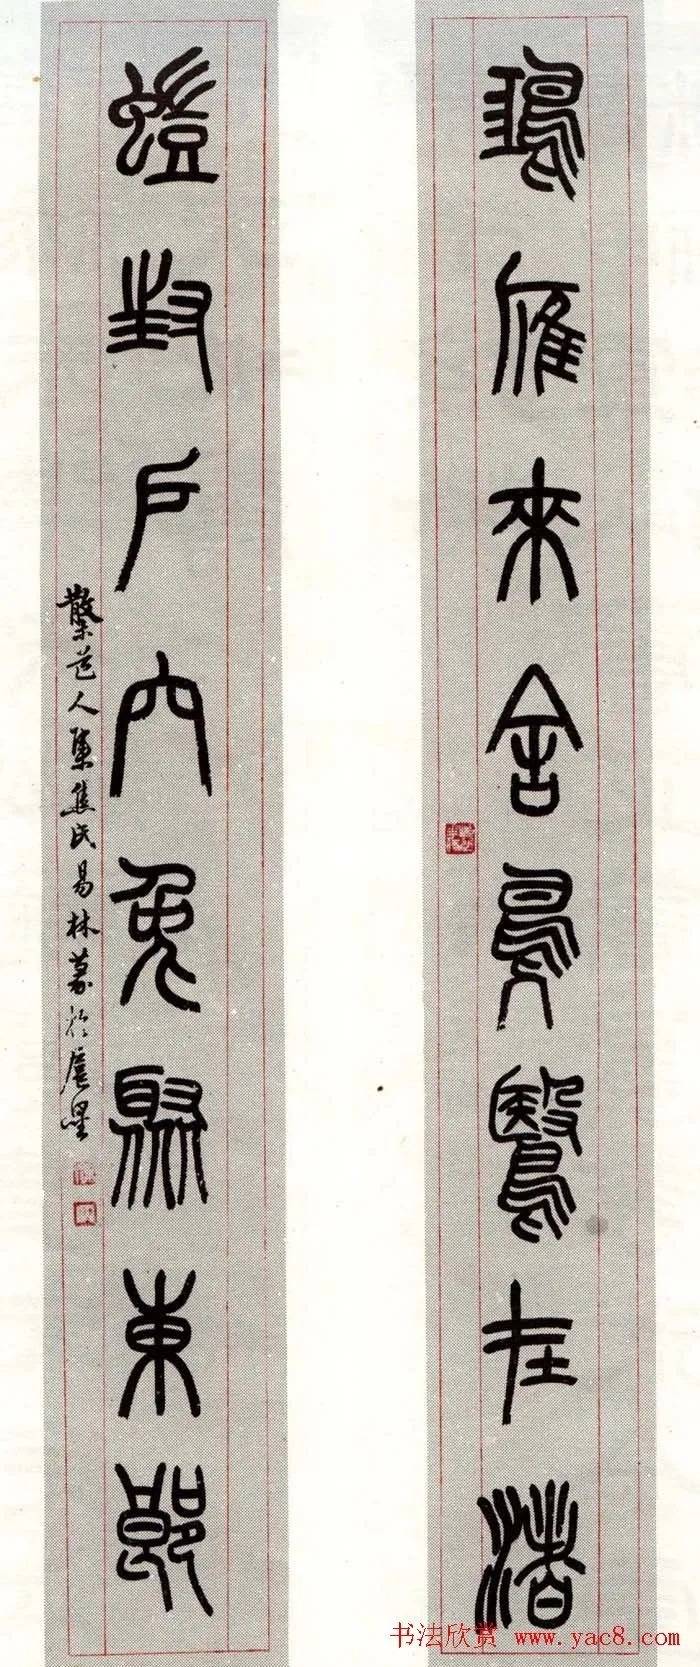 鴻雁來舍鳧鷖在渚
螘封戶穴兔聚東郭
道人集焦氏易林篆於虞
书法欣赏 www.yac8.com